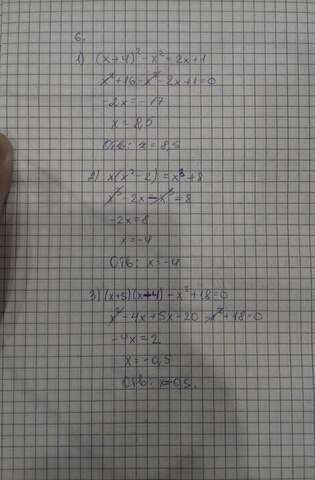 6.
1) (x+4)² - x² = 2x+1
x²+16-x²-2x+1=0
-2x=-17
x=8,5
Отв: x=8,5
2) x(x²-2)=x³+8
x³-2x-x³=8
-2x=8
x=-4
Отв: x=-4
3) (x+5)(x-4)-x²+18=0
x²-4x+5x-20-x²+18=0
-4x=2
x=-0,5
Отв: x=-0,5.